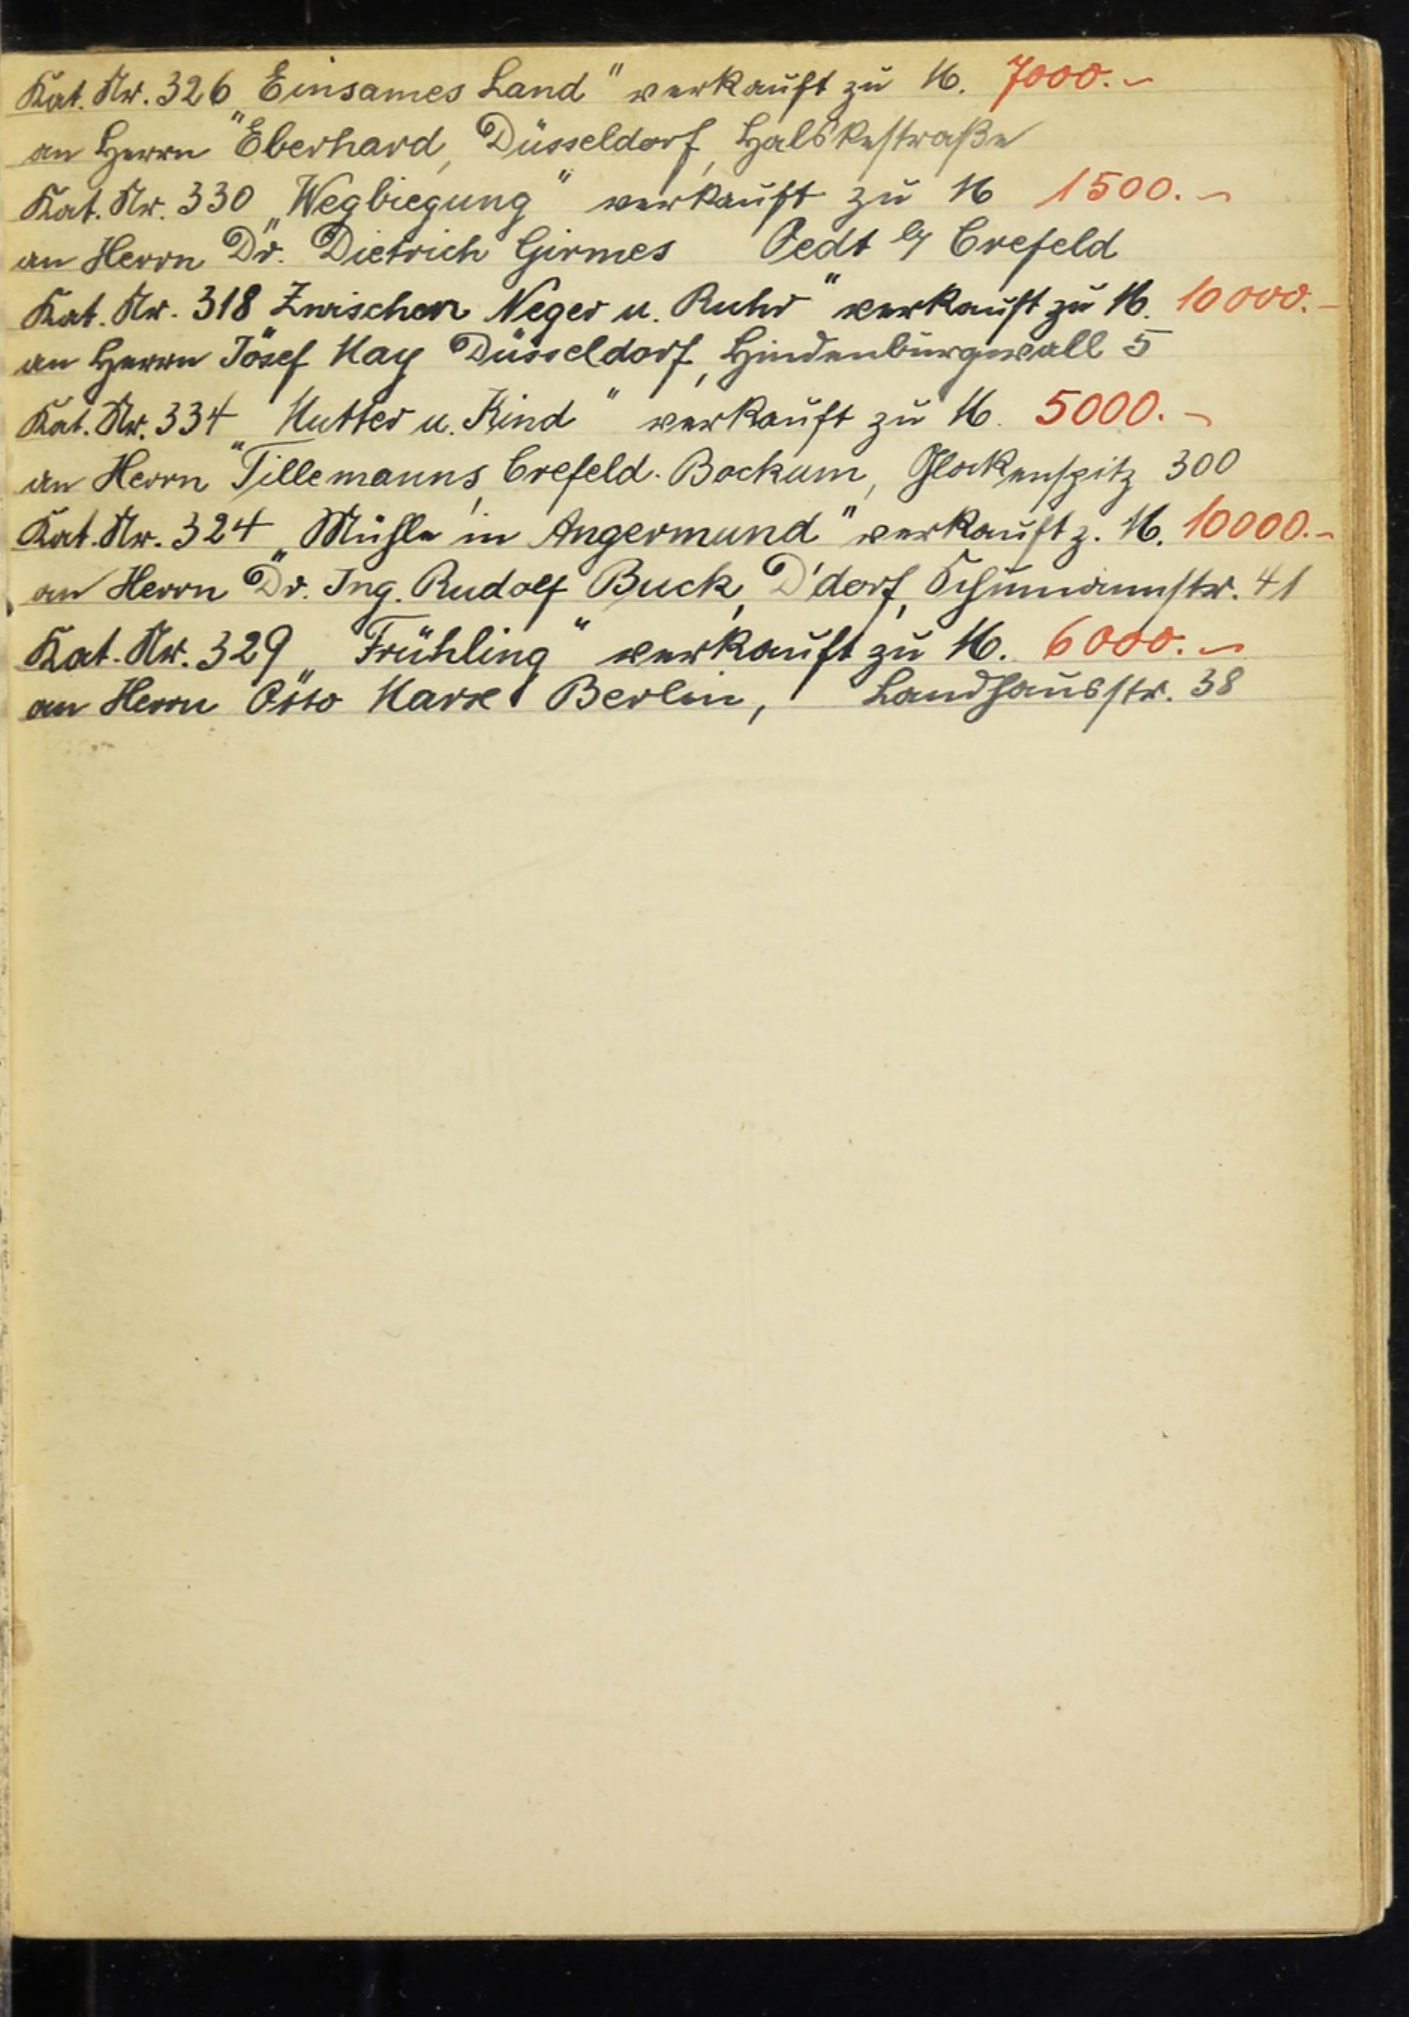 Kat. Nr. 326 „Einsames Land" verkauft zu M. 7000.–
an Herrn Eberhard, Düsseldorf, Halskestraße
Kat. Nr. 330 „Wegbiegung" verkauft zu M 1500.–
an Herrn Dr. Dietrich Girmes Oedt b/ Crefeld
Kat. Nr. 318 „Zwischen Neger u. Ruhr" verkauft zu M. 10000.–
an Herrn Josef May Düsseldorf, Hindenburgwall 5
Kat. Nr. 334 „Mutter u. Kind" verkauft zu M. 5000.–
an Herrn Tillemanns, Crefeld-Bockum, Glockenspitz 300
Kat. Nr. 324 „Mühle in Angermund" verkauft z. M. 10000.–
an Herrn Dr. Ing. Rudolf Buck, D'dorf, Schumannstr. 41
Kat. Nr. 329 „Frühling" verkauft zu M. 6000.–
an Herrn Otto Marx Berlin, Landhausstr. 38